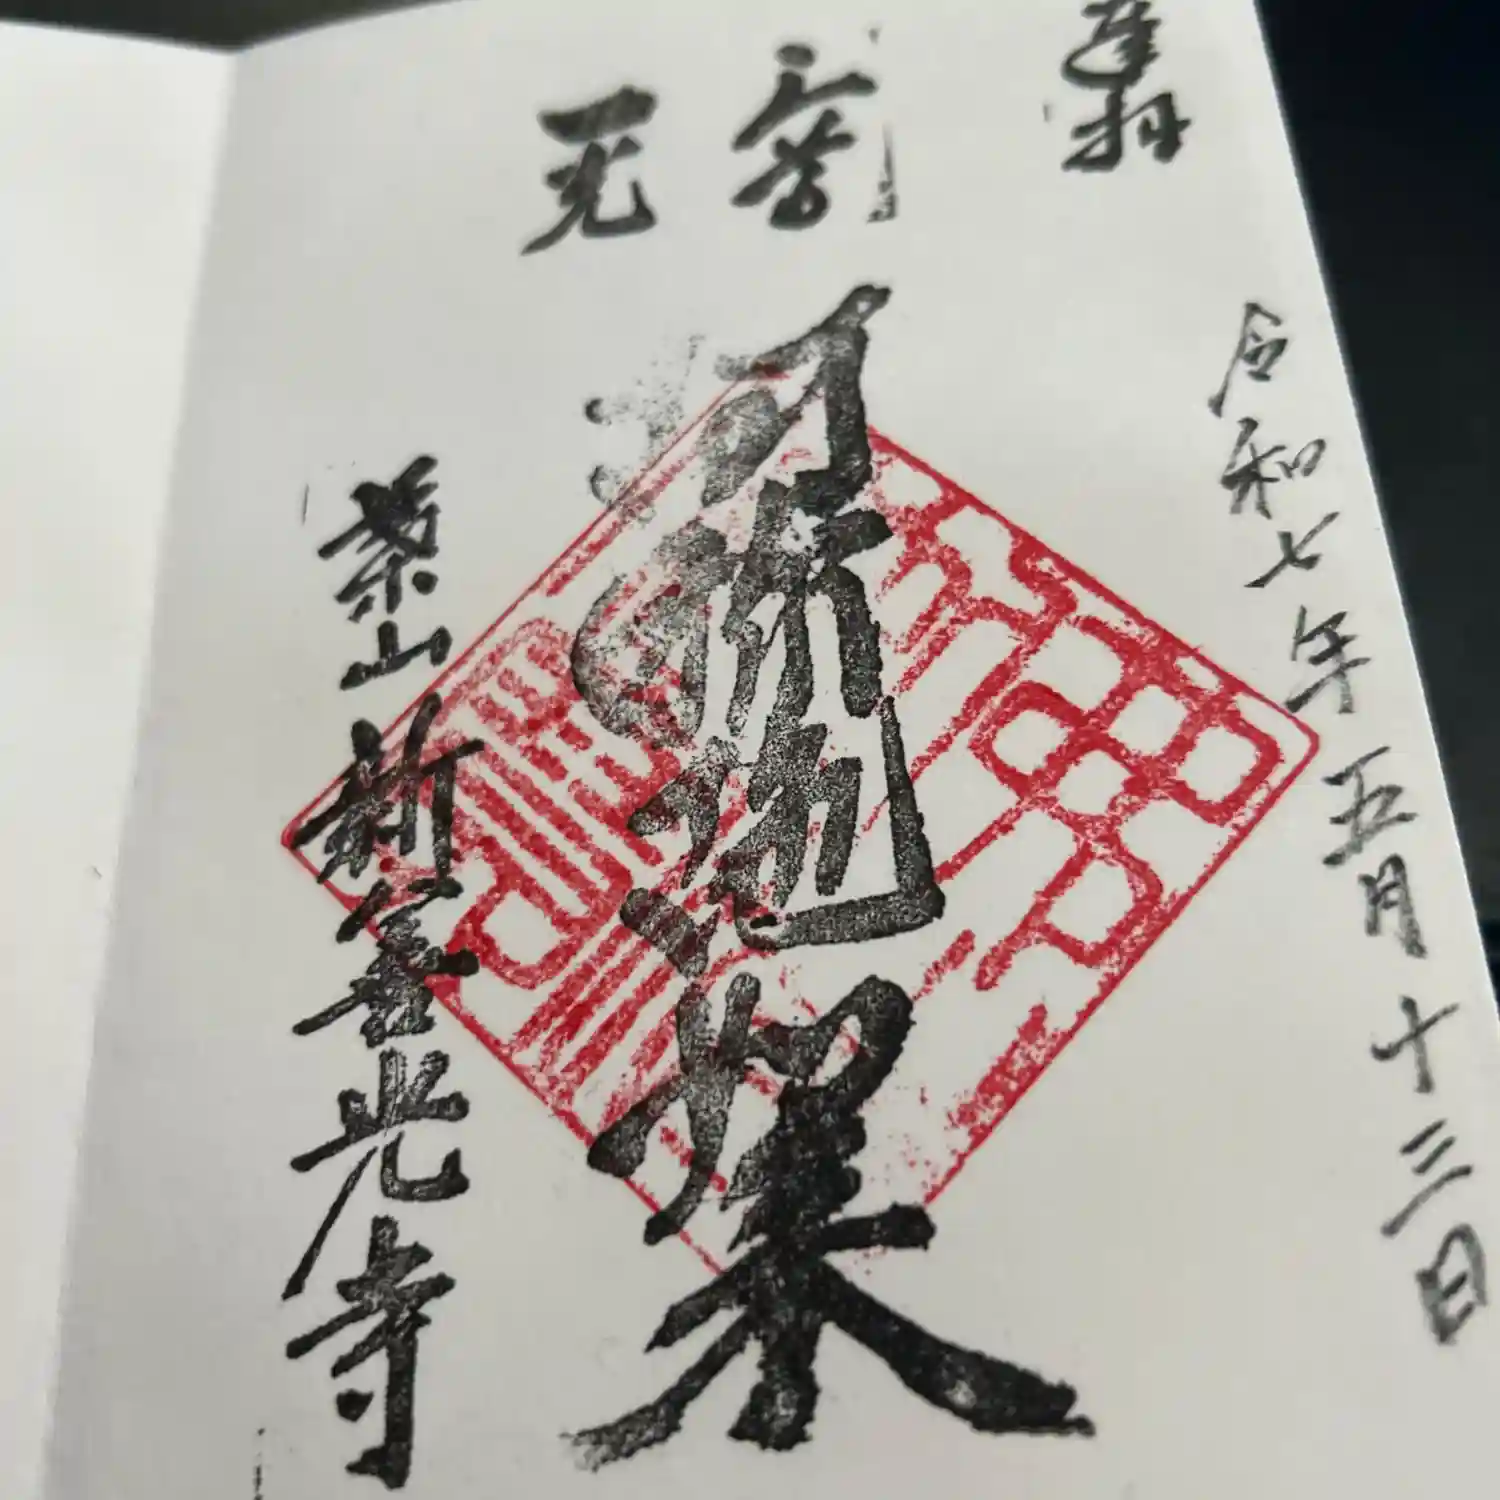 奉拝
令和七年五月十三日
阿弥陀如来
葉山新善光寺